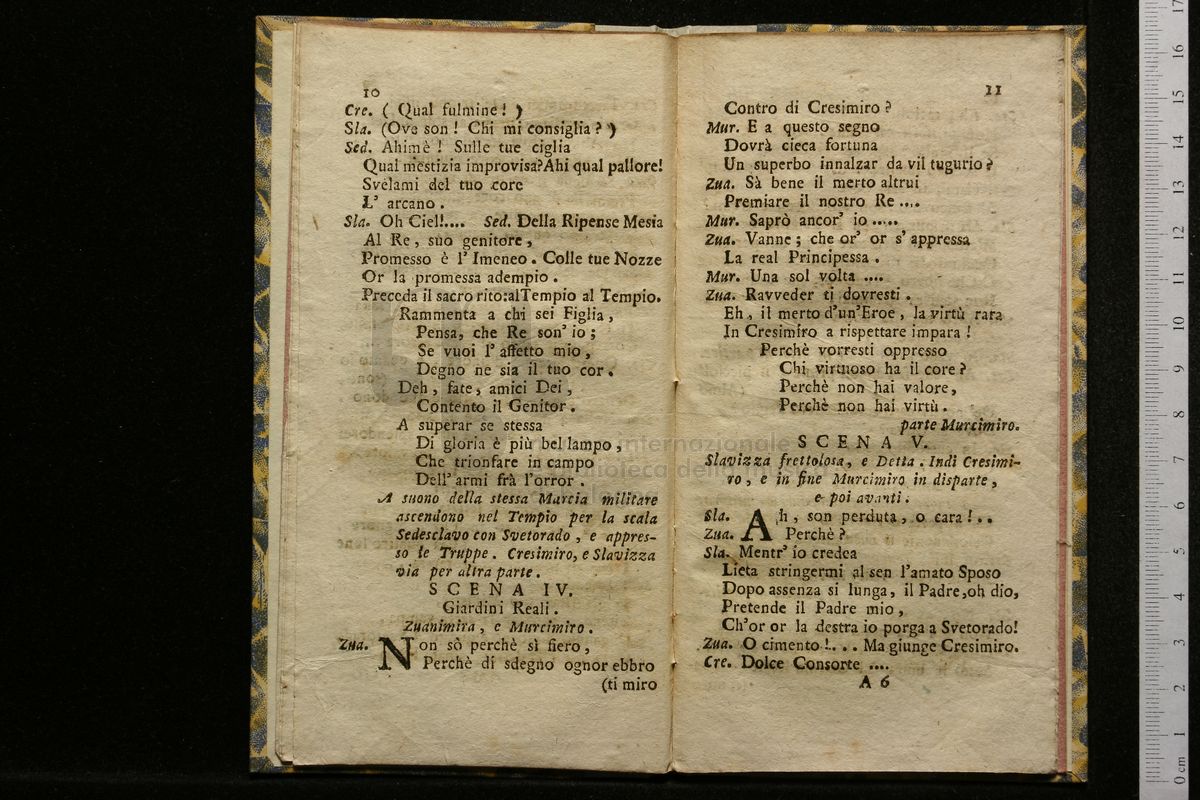 10
Cre. ( Qual fulmine! )
Sla. (Ove son! Chi mi consiglia? )
Sed. Ahimè! Sulle tue ciglia
Qual mestizia improvisa? Ahi qual pallore!
Svelami del tuo core
L' arcano.
Sla. Oh Ciel!.... Sed. Della Ripense Mesia
Al Re, suo genitore,
Promesso è l' Imeneo. Colle tue Nozze
Or la promessa adempio.
Preceda il sacro rito: al Tempio al Tempio.
Rammenta a chi sei Figlia,
Pensa, che Re son' io;
Se vuoi l' affetto mio,
Degno ne sia il tuo cor.
Deh, fate, amici Dei,
Contento il Genitor.
A superar se stessa
Di gloria è più bel lampo,
Che trionfare in campo
Dell' armi frà l'orror.
A suono della stessa Marcia militare
ascendono nel Tempio per la scala
Sedesclavo con Svetorado, e appres-
so le Truppe. Cresimiro, e Slavizza
via per altra parte.
SCENA IV.
Giardini Reali.
Zuanimira, e Murcimiro.
Zua. Non sò perchè sì fiero,
Perchè di sdegno ognor ebbro
(ti miro
11
Contro di Cresimiro?
Mur. E a questo segno
Dovrà cieca fortuna
Un superbo innalzar da vil tugurio?
Zua. Sà bene il merto altrui
Premiare il nostro Re ....
Mur. Saprò ancor' io .....
Zua. Vanne; che or' or s' appressa
La real Principessa.
Mur. Una sol volta ....
Zua. Ravveder ti dovresti.
Eh, il merto d'un' Eroe, la virtù rara
In Cresimiro a rispettare impara!
Perchè vorresti oppresso
Chi virtuoso ha il core?
Perchè non hai valore,
Perchè non hai virtù.
parte Murcimiro.
SCENA V.
Slavizza frettolosa, e Detta. Indi Cresimi-
ro, e in fine Murcimiro in disparte,
e poi avanti.
Sla. Ah, son perduta, o cara!..
Zua. Perchè?
Sla. Mentr' io credea
Lieta stringermi al sen l'amato Sposo
Dopo assenza sì lunga, il Padre, oh dio,
Pretende il Padre mio,
Ch'or or la destra io porga a Svetorado!
Zua. O cimento!... Ma giunge Cresimiro.
Cre. Dolce Consorte ....
A 6